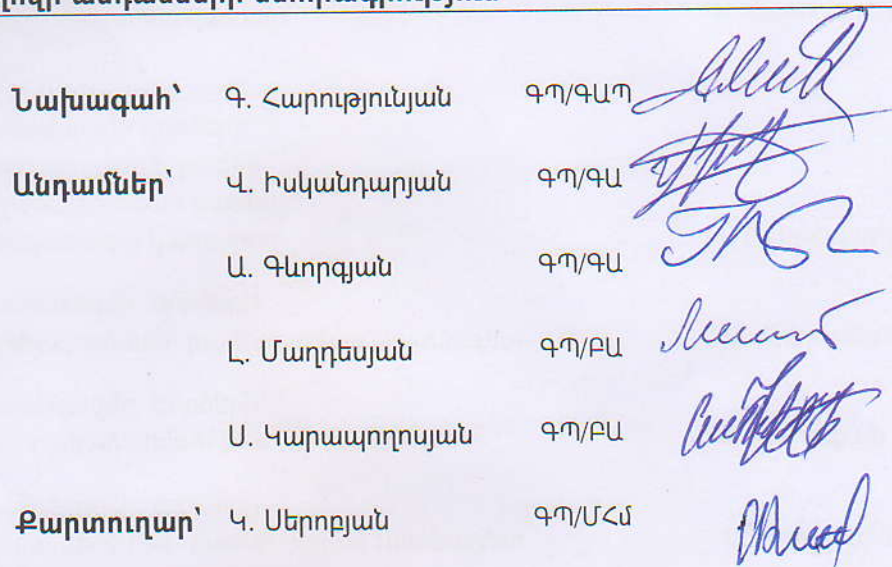 Նախագահ՝ Գ. Հարությունյան ԳՊ/ԳԱՊ
Անդամներ՝ Վ. Իսկանդարյան ԳՊ/ԳԱ
Ա. Գևորգյան ԳՊ/ԳԱ
Լ. Մաղդեսյան ԳՊ/ԲԱ
Ս. Կարապողոսյան ԳՊ/ԲԱ
Քարտուղար՝ Կ. Սերոբյան ԳՊ/ՄՀմ